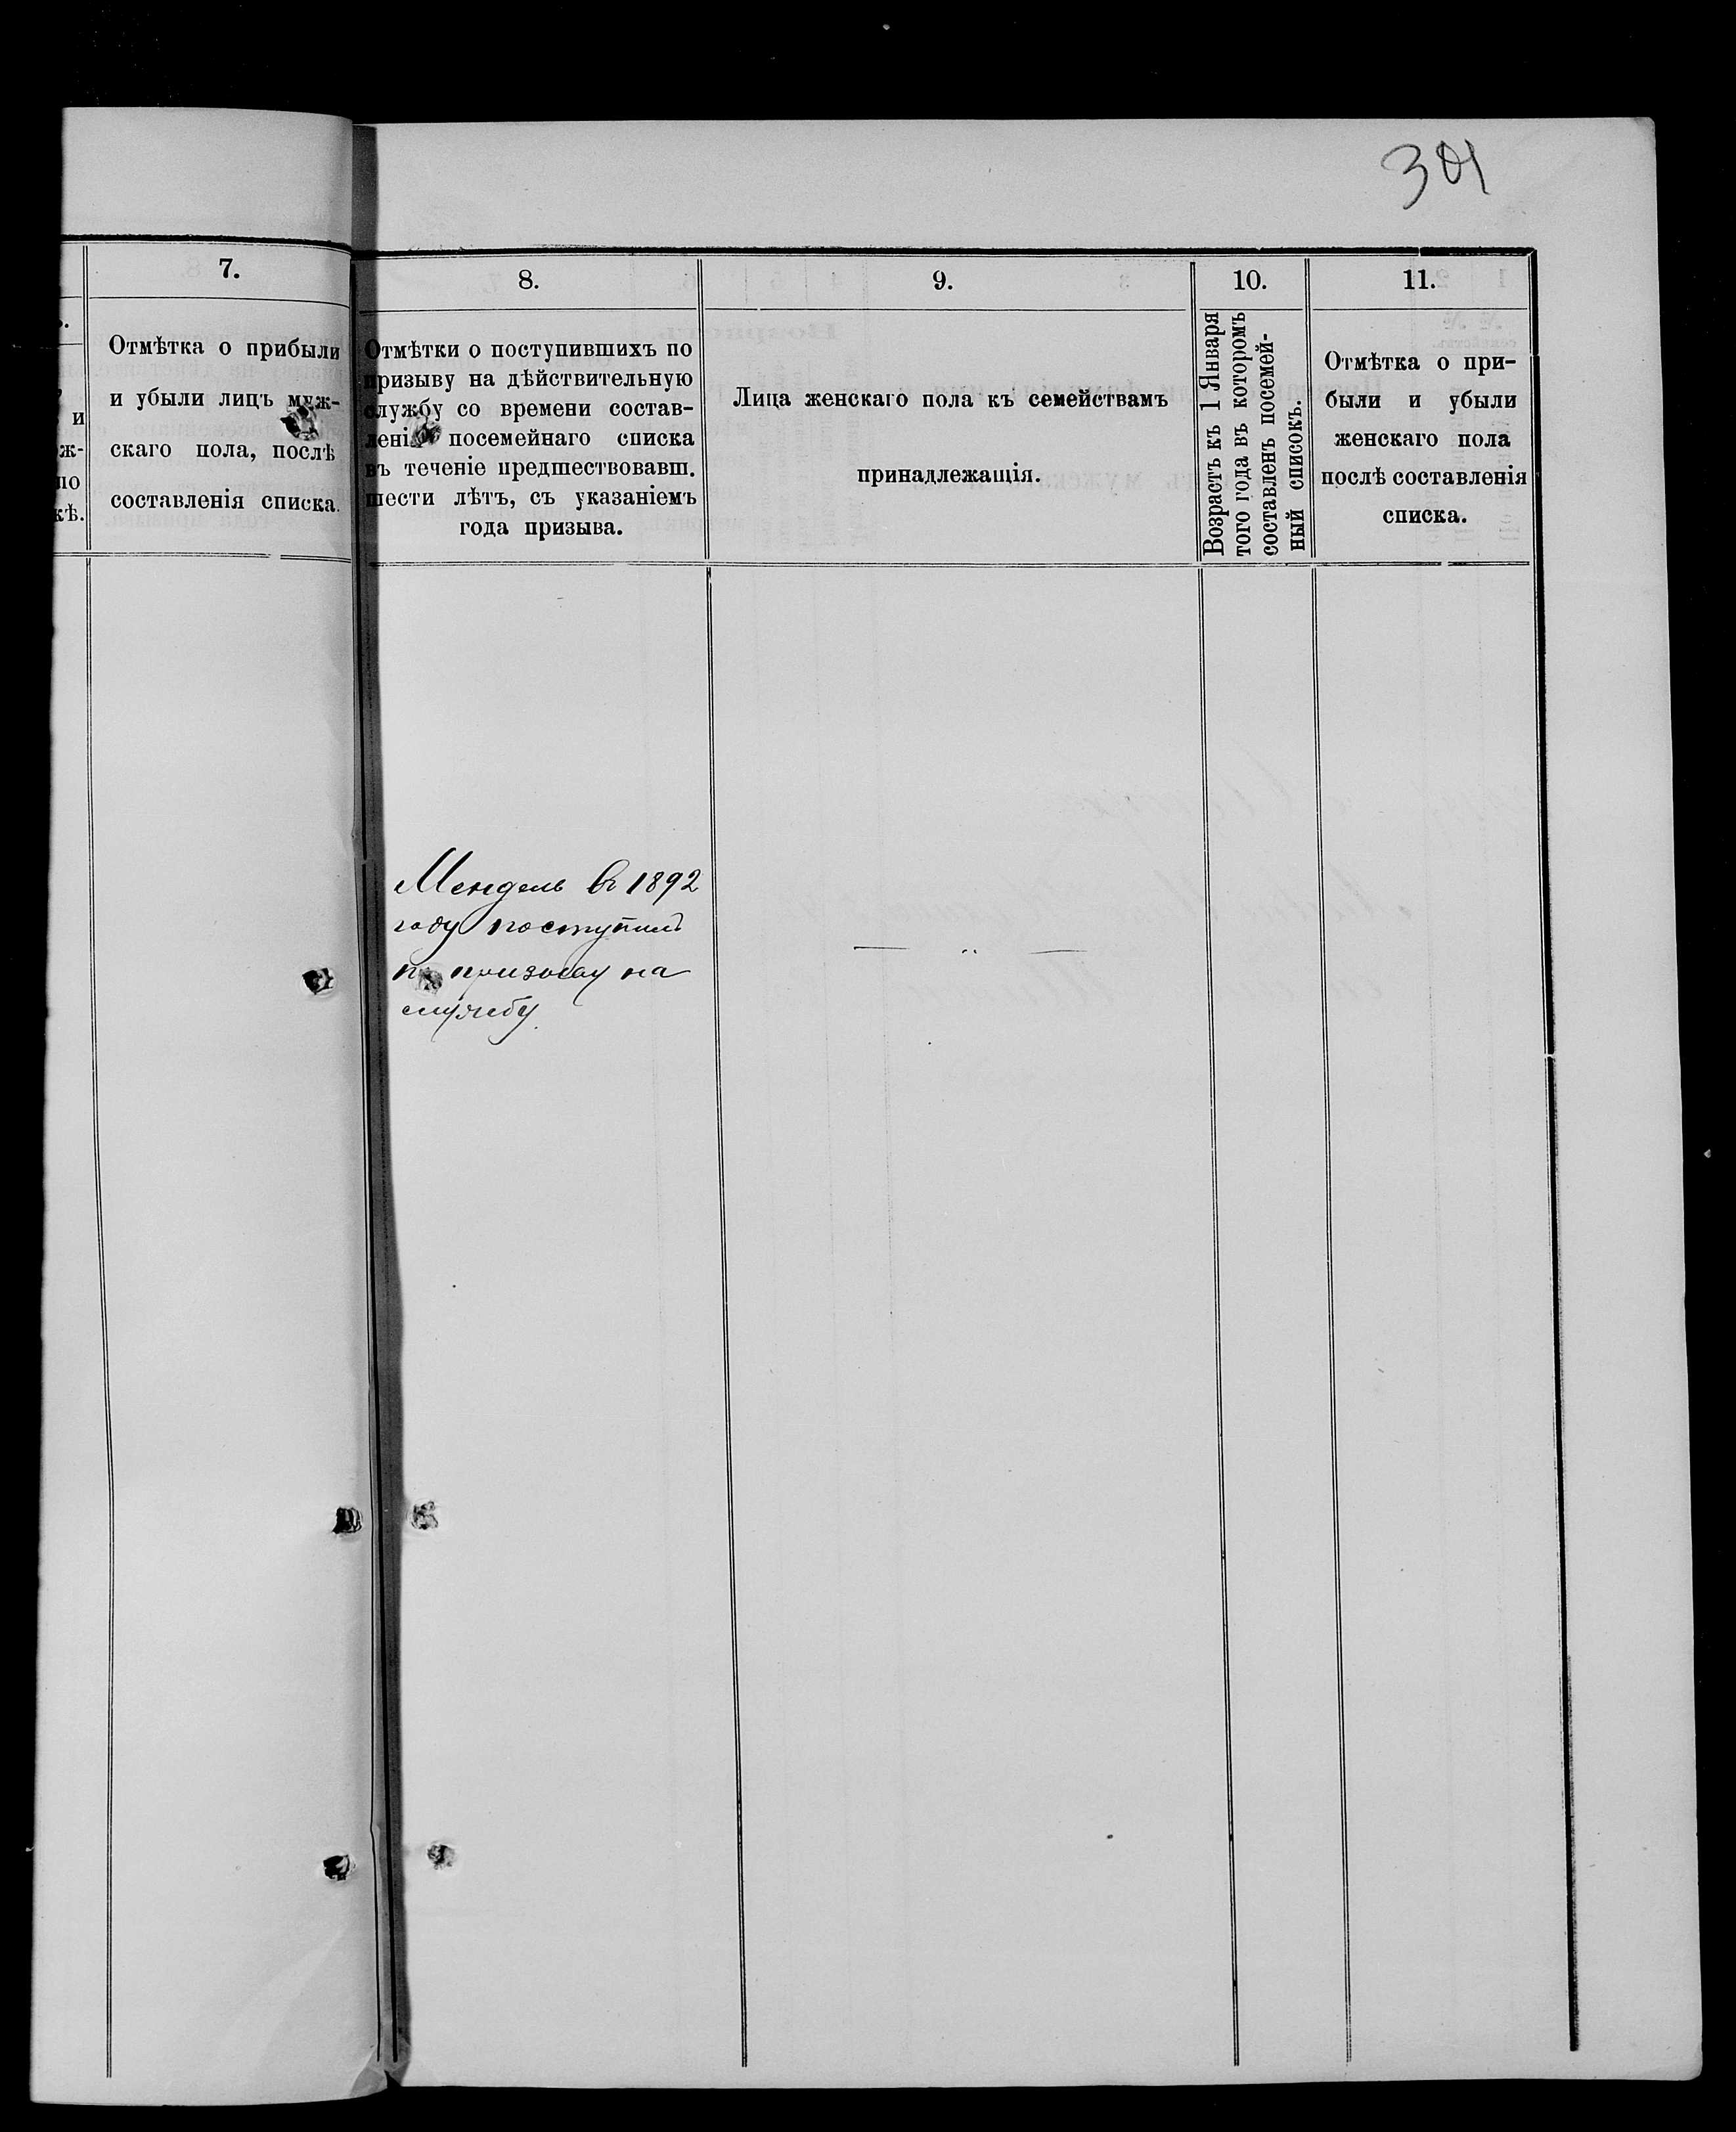 301
7.
Отмѣтка о прибыли
и убыли лицъ муж-
скаго пола, послѣ
составленія списка.
и
ж-
по
кѣ.
8.
Отмѣтки о поступившихъ по
призыву на дѣйствительную
службу со времени состав-
ленія посемейнаго списка
въ теченіе предшествовавш.
шести лѣтъ, съ указаніемъ
года призыва.
9.
Лица женскаго пола къ семействамъ
принадлежащія.
10.
Возрастъ къ 1 Января
того года въ которомъ
составленъ посемей-
ный списокъ.
11.
Отмѣтка о при-
были и убыли
женскаго пола
послѣ составленія
списка.
Мендель въ 1892
году поступилъ
по призыву на
службу.
— „ —